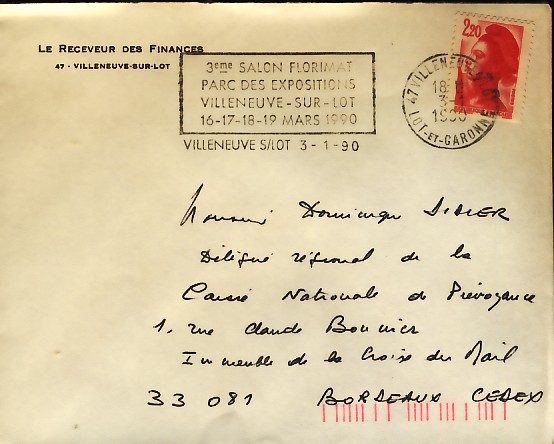 LE RECEVEUR DES FINANCES
47 - VILLENEUVE-SUR-LOT
3eme SALON FLORIMAT
PARC DES EXPOSITIONS
VILLENEUVE-SUR-LOT
16-17-18-19 MARS 1990
VILLENEUVE S/LOT 3-1-90
2,20
47 VILLENEUVE
18 H
3-
1990
LOT-ET-GARONNE
Monsieur Dominique DIDIER
Délégué régional de la
Caisse Nationale de Prévoyance
1, rue Claude Bonnier
Immeuble de la Croix du Mail
33 081 BORDEAUX CEDEX